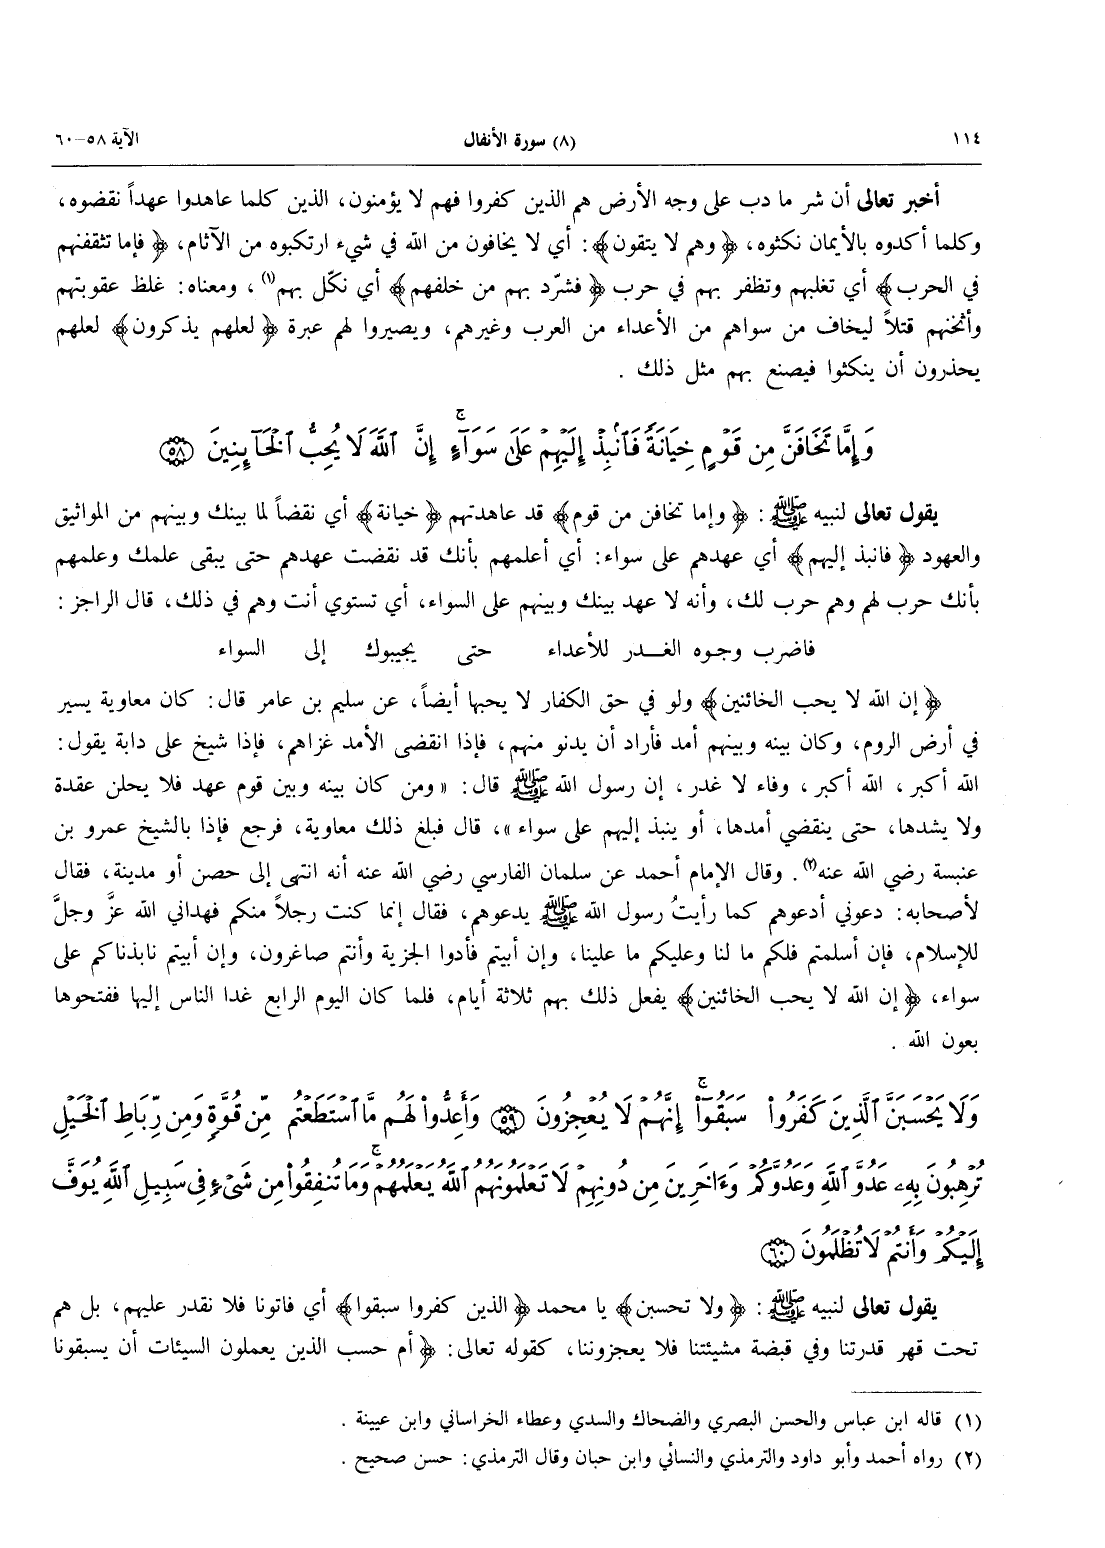 ١١٤ (٨) سورة الأنفال الآية ٥٨-٦٠
أخبر تعالى أن شر ما دب على وجه الأرض هم الذين كفروا فهم لا يؤمنون، الذين كلما عاهدوا عهداً نقضوه،
وكلما أكدوه بالأيمان نكثوه، ﴿وهم لا يتقون﴾: أي لا يخافون من الله في شيء ارتكبوه من الآثام، ﴿فإما تثقفنهم
في الحرب﴾ أي تغلبهم وتظفر بهم في حرب ﴿فشرّد بهم من خلفهم﴾ أي نكّل بهم(١)، ومعناه: غلظ عقوبتهم
وأثخنهم قتلاً ليخاف من سواهم من الأعداء من العرب وغيرهم، ويصيروا لهم عبرة ﴿لعلهم يذكرون﴾ لعلهم
يحذرون أن ينكثوا فيصنع بهم مثل ذلك .
وَإِمَّا تَخَافَنَّ مِن قَوْمٍ خِيَانَةً فَٱنۢبِذْ إِلَيْهِمْ عَلَىٰ سَوَآءٍ ۚ إِنَّ ٱللَّهَ لَا يُحِبُّ ٱلْخَآئِنِينَ ﴿٥٨﴾
يقول تعالى لنبيه ﷺ: ﴿وإما تخافن من قوم﴾ قد عاهدتهم ﴿خيانة﴾ أي نقضاً لما بينك وبينهم من المواثيق
والعهود ﴿فانبذ إليهم﴾ أي عهدهم على سواء: أي أعلمهم بأنك قد نقضت عهدهم حتى يبقى علمك وعلمهم
بأنك حرب لهم وهم حرب لك، وأنه لا عهد بينك وبينهم على السواء، أي تستوي أنت وهم في ذلك، قال الراجز :
فاضرب وجوه الغـدر للأعداء حتى يجيبوك إلى السواء
﴿إن الله لا يحب الخائنين﴾ ولو في حق الكفار لا يحبها أيضاً، عن سليم بن عامر قال: كان معاوية يسير
في أرض الروم، وكان بينه وبينهم أمد فأراد أن يدنو منهم، فإذا انقضى الأمد غزاهم، فإذا شيخ على دابة يقول:
الله أكبر، الله أكبر، وفاء لا غدر، إن رسول الله ﷺ قال: «ومن كان بينه وبين قوم عهد فلا يحلن عقدة
ولا يشدها، حتى ينقضي أمدها، أو ينبذ إليهم على سواء»، قال فبلغ ذلك معاوية، فرجع فإذا بالشيخ عمرو بن
عنبسة رضي الله عنه(٢). وقال الإمام أحمد عن سلمان الفارسي رضي الله عنه أنه انتهى إلى حصن أو مدينة، فقال
لأصحابه: دعوني أدعوهم كما رأيتُ رسول الله ﷺ يدعوهم، فقال إنما كنت رجلاً منكم فهداني الله عزَّ وجلَّ
للإسلام، فإن أسلمتم فلكم ما لنا وعليكم ما علينا، وإن أبيتم فأدوا الجزية وأنتم صاغرون، وإن أبيتم نابذناكم على
سواء، ﴿إن الله لا يحب الخائنين﴾ يفعل ذلك بهم ثلاثة أيام، فلما كان اليوم الرابع غدا الناس إليها ففتحوها
بعون الله .
وَلَا يَحْسَبَنَّ ٱلَّذِينَ كَفَرُوا۟ سَبَقُوٓا۟ ۚ إِنَّهُمْ لَا يُعْجِزُونَ ﴿٥٩﴾ وَأَعِدُّوا۟ لَهُم مَّا ٱسْتَطَعْتُم مِّن قُوَّةٍ وَمِن رِّبَاطِ ٱلْخَيْلِ
تُرْهِبُونَ بِهِۦ عَدُوَّ ٱللَّهِ وَعَدُوَّكُمْ وَءَاخَرِينَ مِن دُونِهِمْ لَا تَعْلَمُونَهُمُ ٱللَّهُ يَعْلَمُهُمْ ۚ وَمَا تُنفِقُوا۟ مِن شَىْءٍ فِى سَبِيلِ ٱللَّهِ يُوَفَّ
إِلَيْكُمْ وَأَنتُمْ لَا تُظْلَمُونَ ﴿٦٠﴾
يقول تعالى لنبيه ﷺ: ﴿ولا تحسبن﴾ يا محمد ﴿الذين كفروا سبقوا﴾ أي فاتونا فلا نقدر عليهم، بل هم
تحت قهر قدرتنا وفي قبضة مشيئتنا فلا يعجزوننا، كقوله تعالى: ﴿أم حسب الذين يعملون السيئات أن يسبقونا
(١) قاله ابن عباس والحسن البصري والضحاك والسدي وعطاء الخراساني وابن عيينة .
(٢) رواه أحمد وأبو داود والترمذي والنسائي وابن حبان وقال الترمذي: حسن صحيح .